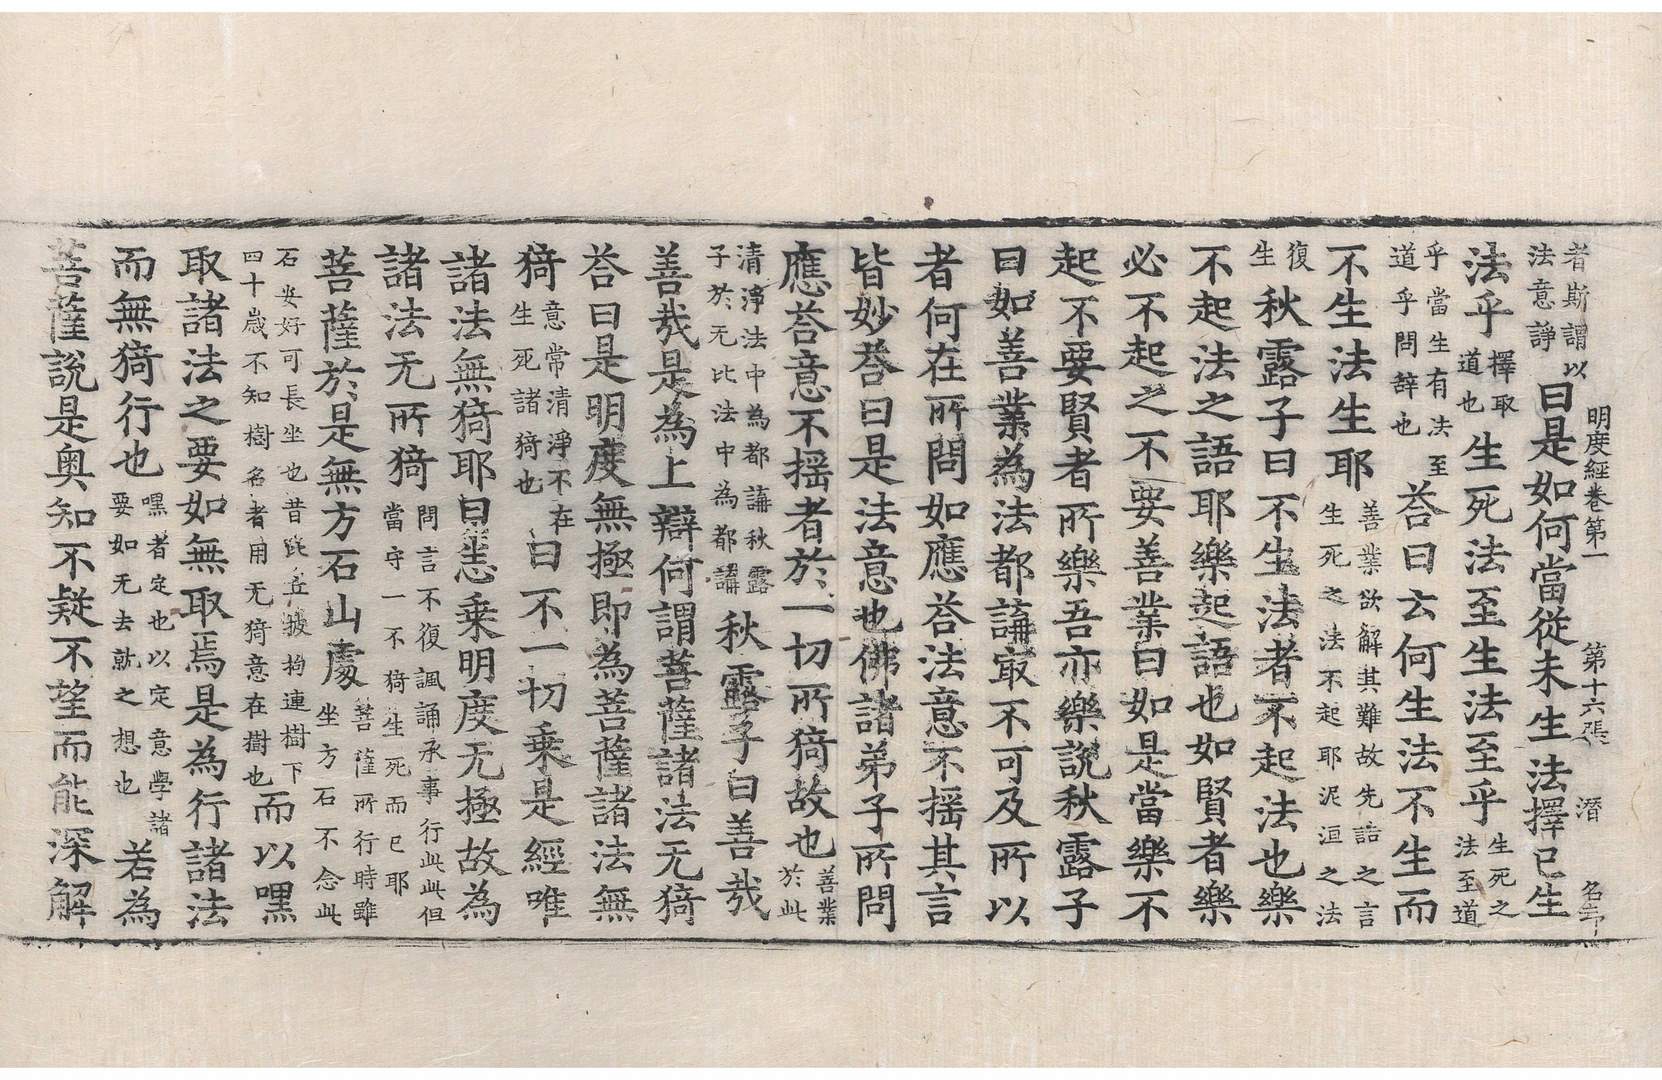 明度經卷第一　第十六張　潛　名
者斯謂以法意諍曰是如何當從未生法擇已生
法乎擇取道也生死法至生法至乎生死之法至道
乎當生有法至道乎問辞也荅曰云何生法不生而
不生法生耶善業欲解其難故先詰之言生死之法不起耶泥洹之法
復生秋露子曰不生法者不起法也樂
不起法之語耶樂起語也如賢者樂
必不起之不要善業曰如是當樂不
起不要賢者所樂吾亦樂說秋露子
曰如善業為法都講㝡不可及所以
者何在所問如應荅法意不揺其言
皆妙荅曰是法意也佛諸弟子所問
應荅意不揺者於一切所猗故也善業於此
清淨法中為都講秋露子於无比法中為都講秋露子曰善哉
善哉是為上辯何謂菩薩諸法无猗
荅曰是明度無極即為菩薩諸法無
猗意常清淨不在生死諸猗也曰不一切乗是經唯
諸法無猗耶曰悉乗明度无極故為
諸法无所猗問言不復諷誦承事行此此但當守一不猗生死而已耶
菩薩於是無方石山處菩薩所行時雖坐方石不念此
石安好可長坐也昔比丘披拘連樹下四十歲不知樹名者用无猗意在樹也而以嘿
取諸法之要如無取焉是為行諸法
而無猗行也嘿者定也以定意學諸要如无去就之想也若為
菩薩說是奥知不疑不望而能深解